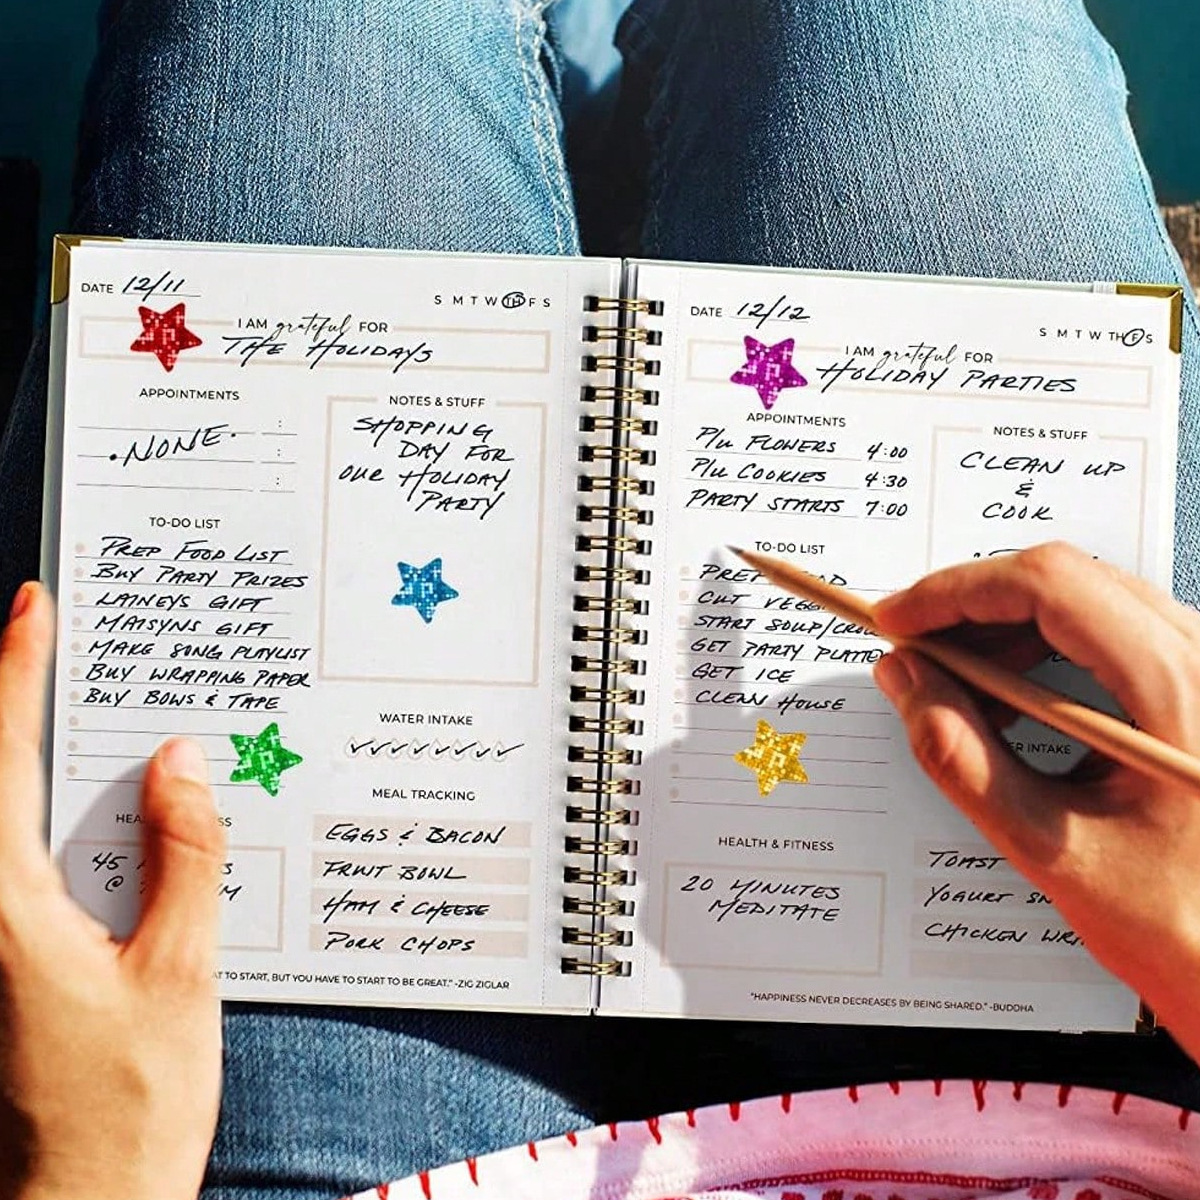 DATE 12/11
S M T W TH F S
I AM grateful FOR
THE HOLIDAYS
APPOINTMENTS
.NONE.
:
:
:
TO-DO LIST
PREP FOOD LIST
BUY PARTY PRIZES
LAINEYS GIFT
MAISYNS GIFT
MAKE SONG PLAYLIST
BUY WRAPPING PAPER
BUY BOWS & TAPE
HEA SS
45
@ M
NOTES & STUFF
SHOPPING
DAY FOR
OUR HOLIDAY
PARTY
WATER INTAKE
MEAL TRACKING
EGGS & BACON
FRUIT BOWL
HAM & CHEESE
PORK CHOPS
AT TO START, BUT YOU HAVE TO START TO BE GREAT." -ZIG ZIGLAR
DATE 12/12
S M T W TH F S
I AM grateful FOR
HOLIDAY PARTIES
APPOINTMENTS
P/U FLOWERS 4:00
P/U COOKIES 4:30
PARTY STARTS 7:00
TO-DO LIST
PREP FOOD
CUT VEGG
START SOUP/CRO
GET PARTY PLATTE
GET ICE
CLEAN HOUSE
HEALTH & FITNESS
20 MINUTES
MEDITATE
NOTES & STUFF
CLEAN UP
&
COOK
ER INTAKE
TOAST
YOGURT SN
CHICKEN WR
"HAPPINESS NEVER DECREASES BY BEING SHARED." -BUDDHA